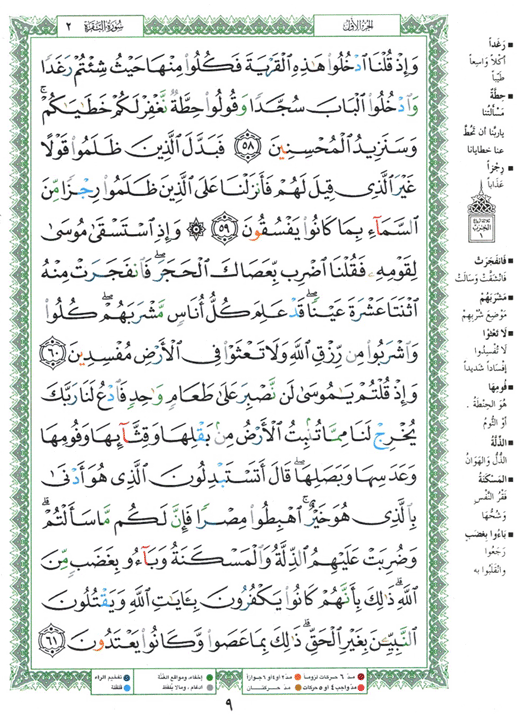 الجزء الأول
سورة البقرة ٢
وَإِذْ قُلْنَا ٱدْخُلُوا۟ هَٰذِهِ ٱلْقَرْيَةَ فَكُلُوا۟ مِنْهَا حَيْثُ شِئْتُمْ رَغَدًا
وَٱدْخُلُوا۟ ٱلْبَابَ سُجَّدًا وَقُولُوا۟ حِطَّةٌ نَّغْفِرْ لَكُمْ خَطَٰيَٰكُمْ ۚ
وَسَنَزِيدُ ٱلْمُحْسِنِينَ ٥٨ فَبَدَّلَ ٱلَّذِينَ ظَلَمُوا۟ قَوْلًا
غَيْرَ ٱلَّذِى قِيلَ لَهُمْ فَأَنزَلْنَا عَلَى ٱلَّذِينَ ظَلَمُوا۟ رِجْزًا مِّنَ
ٱلسَّمَآءِ بِمَا كَانُوا۟ يَفْسُقُونَ ٥٩ ۞ وَإِذِ ٱسْتَسْقَىٰ مُوسَىٰ
لِقَوْمِهِۦ فَقُلْنَا ٱضْرِب بِّعَصَاكَ ٱلْحَجَرَ ۖ فَٱنفَجَرَتْ مِنْهُ
ٱثْنَتَا عَشْرَةَ عَيْنًا ۖ قَدْ عَلِمَ كُلُّ أُنَاسٍ مَّشْرَبَهُمْ ۖ كُلُوا۟
وَٱشْرَبُوا۟ مِن رِّزْقِ ٱللَّهِ وَلَا تَعْثَوْا۟ فِى ٱلْأَرْضِ مُفْسِدِينَ ٦٠
وَإِذْ قُلْتُمْ يَٰمُوسَىٰ لَن نَّصْبِرَ عَلَىٰ طَعَامٍ وَٰحِدٍ فَٱدْعُ لَنَا رَبَّكَ
يُخْرِجْ لَنَا مِمَّا تُنۢبِتُ ٱلْأَرْضُ مِنۢ بَقْلِهَا وَقِثَّآئِهَا وَفُومِهَا
وَعَدَسِهَا وَبَصَلِهَا ۖ قَالَ أَتَسْتَبْدِلُونَ ٱلَّذِى هُوَ أَدْنَىٰ
بِٱلَّذِى هُوَ خَيْرٌ ۚ ٱهْبِطُوا۟ مِصْرًا فَإِنَّ لَكُم مَّا سَأَلْتُمْ ۗ
وَضُرِبَتْ عَلَيْهِمُ ٱلذِّلَّةُ وَٱلْمَسْكَنَةُ وَبَآءُو بِغَضَبٍ مِّنَ
ٱللَّهِ ۗ ذَٰلِكَ بِأَنَّهُمْ كَانُوا۟ يَكْفُرُونَ بِـَٔايَٰتِ ٱللَّهِ وَيَقْتُلُونَ
ٱلنَّبِيِّـۧنَ بِغَيْرِ ٱلْحَقِّ ۗ ذَٰلِكَ بِمَا عَصَوا۟ وَّكَانُوا۟ يَعْتَدُونَ ٦١
■ رَغَداً
أكْلاً وَاسِعاً
طَيِّباً
■ حِطَّةٌ
مَسْأَلَتُنا
يا ربَّنا أن تَحُطَّ
عنا خطايانا
■ رِجْزاً
عَذَاباً
الحزب
١
■ فَانفَجَرَتْ
فَانْشَقَّتْ وَسَالَتْ
■ مَشْرَبَهُمْ
مَوْضِعَ شُرْبِهِمْ
■ لَا تَعْثَوْا
لَا تُفْسِدُوا
إفْسَاداً شَدِيداً
■ فُومِهَا
هُوَ الحِنْطَةُ
أو الثُّومُ
■ الذِّلَّةُ
الذُّلُّ والهَوَانُ
■ المَسْكَنَةُ
فَقْرُ النَّفْسِ
وَشُحُّهَا
■ بَاءُوا بِغَضَبٍ
رَجَعُوا
وانْقَلَبُوا به
مدّ ٦ حركات لزوماً
مدّ ٢ أو ٤ أو ٦ جوازاً
إخفاء، ومواقع الغنّة
تفخيم الراء
مدّ واجب ٤ أو ٥ حركات
مدّ حركتان
ادغام، وما لا يُلفظ
قلقلة
٩